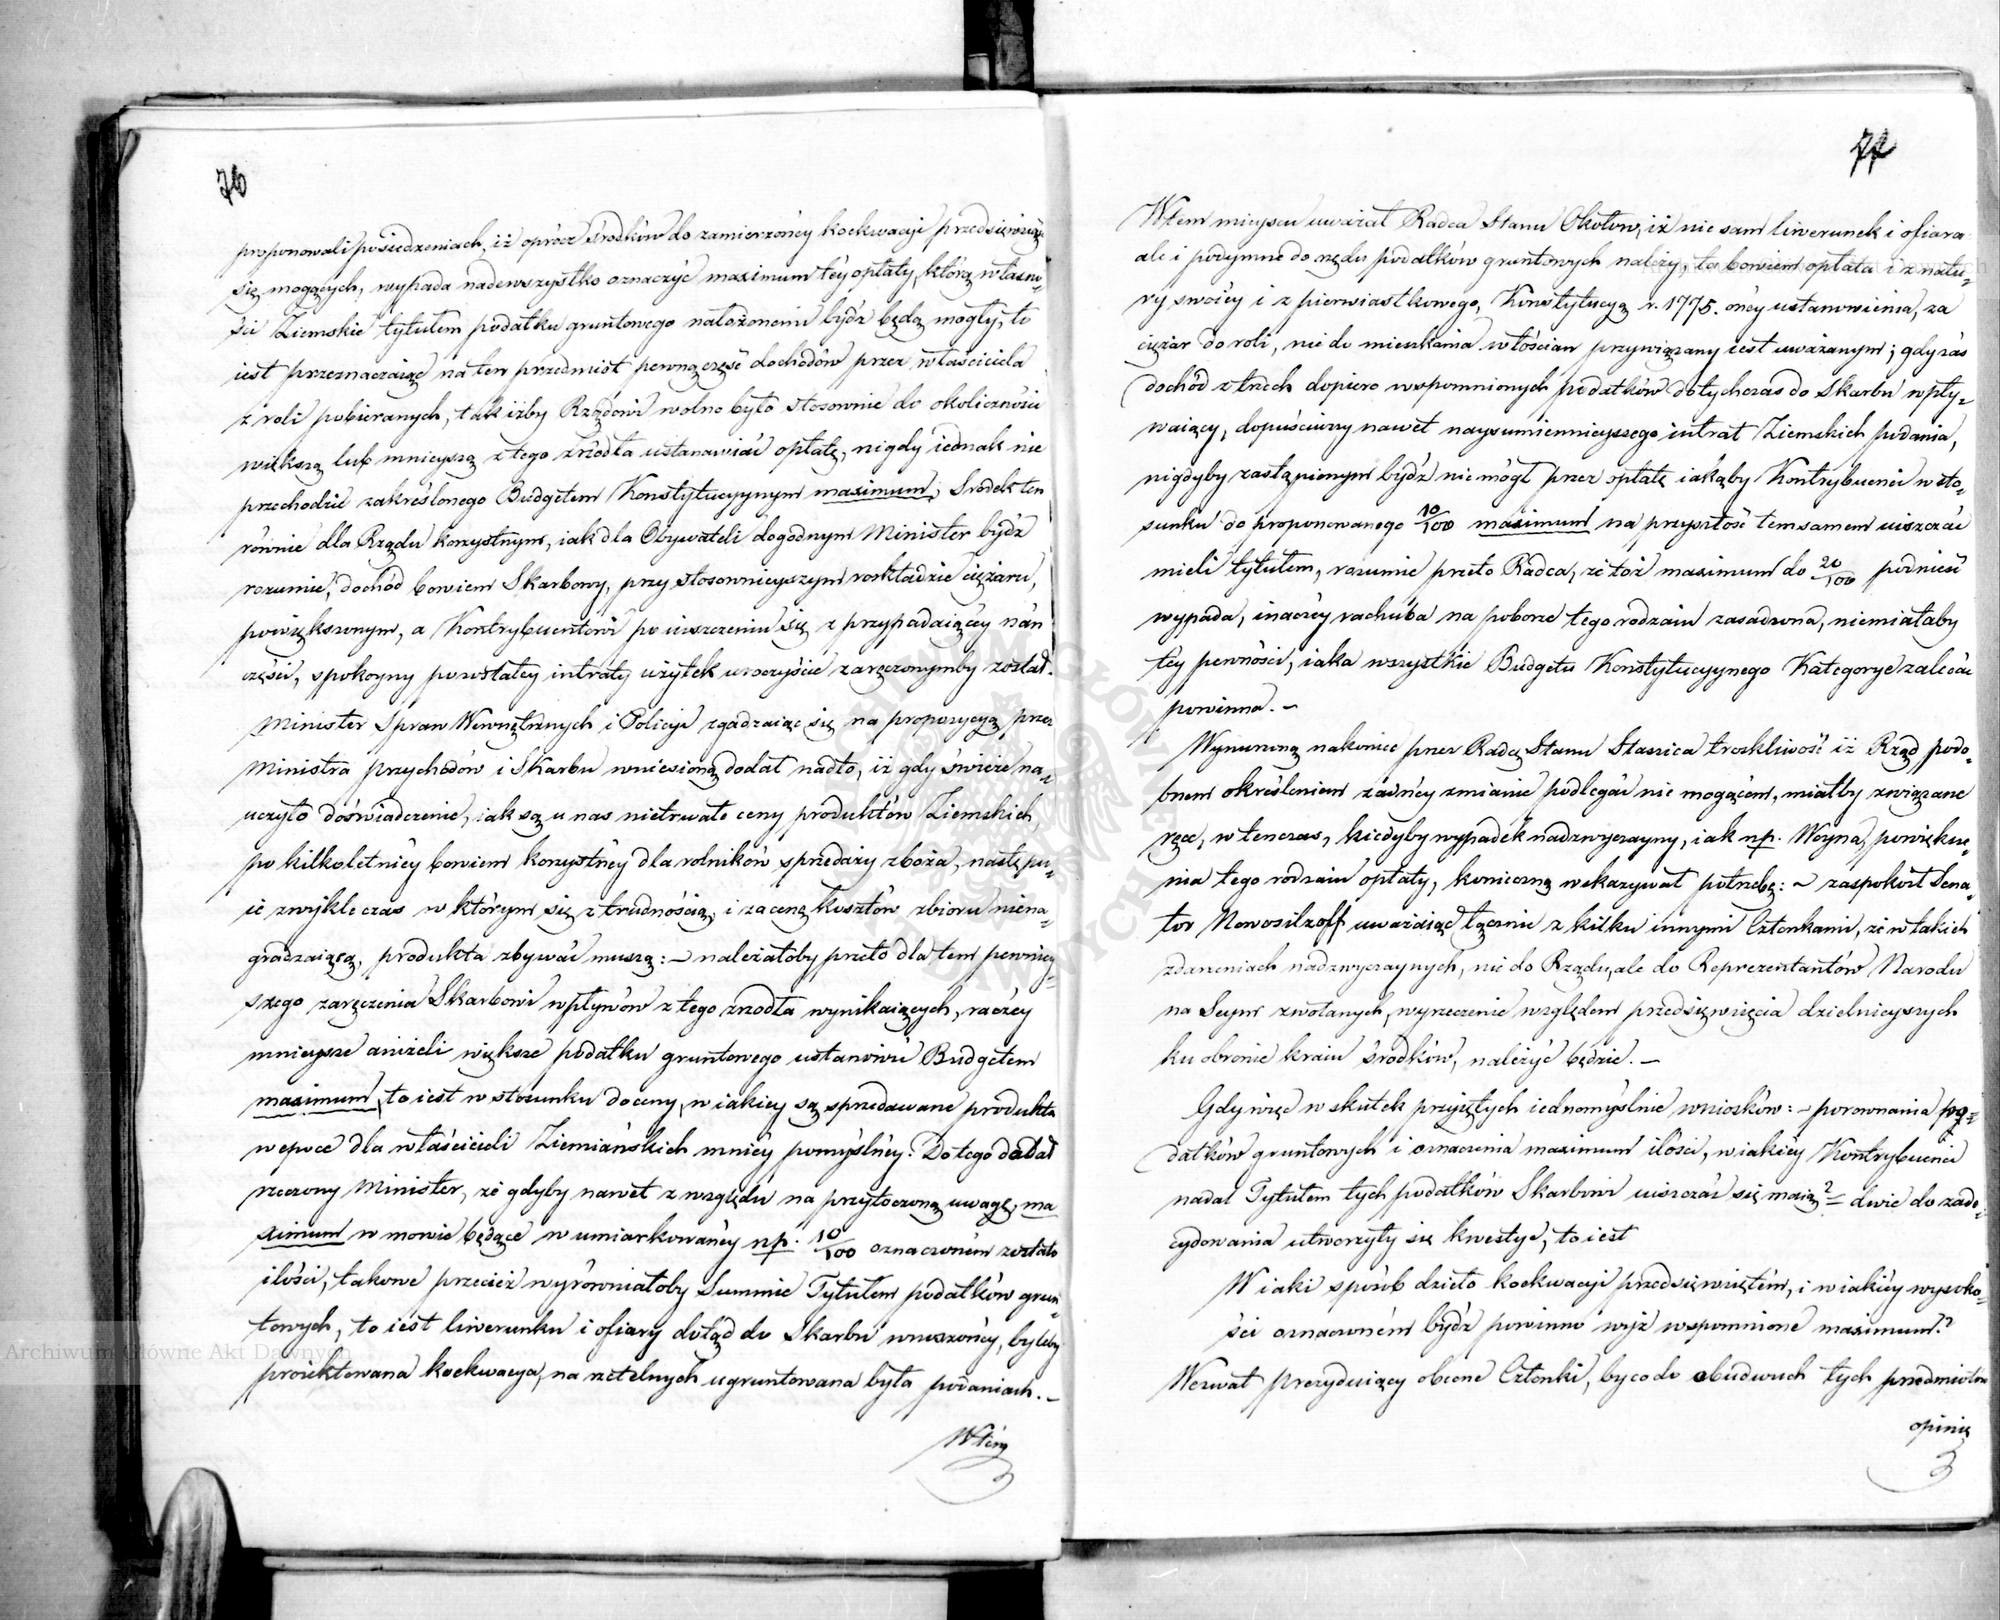 76
proponowali posiedzeniach, iż oprócz środków do zamierzoney koekwacyi przedsięwziąść
się mogących, wypada nadewszystko oznaczyć maximum téy opłaty, którą własno-
ści Ziemskie tytułem podatku gruntowego nałożonemi bydź będą mogły, to
iest przeznaczaiąc na ten przedmiot pewną część dochodów przez właściciela
z roli pobieranych, tak iżby Rządowi wolno było stosownie do okoliczności
większą lub mnieyszą z tego źródła ustanawiać opłatę, nigdy iednak nie
przechodzić zakreślonego Budgetem Konstytucyynym maximum; Srodek ten
równie dla Rządu korzystnym, iak dla Obywateli dogodnym Minister bydź
rozumie; dochód bowiem Skarbowy, przy stosownieyszym rozkładzie ciężaru,
powiększonym, a Kontrybuentowi po uiszczeniu się z przypadaiącéy nań
części, spokoyny pozostałéy intraty użytek uroczyście zaręczonymby został.
Minister Spraw Wewnętrznych i Policyi zgadzaiąc się na propozycyą przez
Ministra przychodów i Skarbu wniesioną dodał nadto, iż gdy świeże na-
uczyło doświadczenie, iak są u nas nietrwałe ceny produktów Ziemskich,
po kilkoletniéy bowiem korzystnéy dla rolników sprzedaży zboża, następu-
ie zwykle czas w którym się z trudnością, i za cenę kosztów zbioru niena-
gradzaiącą, produkta zbywać muszą: – należałoby przeto dla tem pewniey-
szego zaręczenia Skarbowi wpływów z tego źrodła wynikaiących, raczéy
mnieysze aniżeli większe podatku gruntowego ustanowić Budgetem
maximum, to iest w stosunku do ceny, w iakiey są sprzedawane produkta
w epoce dla właścicieli Ziemiańskich mniéy pomyślnéy. Do tego dodał
rzeczony Minister, że gdyby nawet z względu na przytoczoną uwagę, ma
ximum w mowie będące w umiarkowanéy np. 10/100 oznaczoném zostało
ilości, takowe przecież wyrównałoby Summie Tytułem podatków grun-
towych, to iest liwerunku i ofiary dotąd do Skarbu wnoszonéy, byleby
proiektowana koekwacya, na rzetelnych ugruntowana była podaniach. –
W tém
77
W tem mieyscu uważał Radca Stanu Okołow, iż nie sam liwerunek i ofiara
ale i podymne do rzędu podatków gruntowych należy, ta bowiem opłata i z natu-
ry swoiéy i z pierwiastkowego, Konstytucyą r. 1775. onéy ustanowienia, za
ciężar do roli, nie do mieszkania włościan przywiązany iest uważanym; gdy zaś
dochód z trzech dopiero wspomnionych podatków dotychczas do Skarbu wpły-
waiący, dopuściwszy nawet naysumiennieyszego intrat Ziemskich podania,
nigdyby zastąpionym bydź nie mógł przez opłatę iakąby Kontrybuenci w sto-
sunku do proponowanego 10/100 maximum na przyszłość temsamem uiszczać
mieli tytułem, rozumie przeto Radca, że toż maximum do 20/100 podnieść
wypada, inaczéy rachuba na poborze tego rodzaiu zasadzona, niemiałaby
téy pewności, iaka wszystkie Budgetu Konstytucyynego Kategorye zalecać
powinna. –
Wynurzoną nakoniec przez Radcę Stanu Staszica troskliwość iż Rząd podo-
bnem określeniem żadnéy zmianie podlegać nie mogącém, miałby związane
ręce, w tenczas, kiedyby wypadek nadzwyczayny, iak np. Woyna, powiększe-
nia tego rodzaiu opłaty, konieczną wskazywał potrzebę: – zaspokoił Sena-
tor Nowosilzoff uważaiąc łącznie z kilku innymi Członkami, że w takich
zdarzeniach nadzwyczaynych, nie do Rządu, ale do Reprezentantów Narodu
na Seym zwołanych, wyrzeczenie względem przedsięwzięcia dzielnieyszych
ku obronie kraiu środków, należyć będzie. –
Gdy więc w skutek przyiętych iednomyślnie wniosków: – porownania po-
datków gruntowych i oznaczenia maximum ilości, w iakiéy Kontrybuenci
nadal Tytułem tych podatków Skarbowi uiszczać się maią? – dwie do zade-
cydowania utworzyły się kwestye, to iest
W iaki sposób dzieło koekwacyi przedsięwziętém, i w iakiéy wysoko-
ści oznaczoném bydź powinno wyż wspomnione maximum?
Wezwał prezyduiący obecne Członki, by co do obudwuch tych przedmiotów
opinię
Archiwum Główne Akt Dawnych